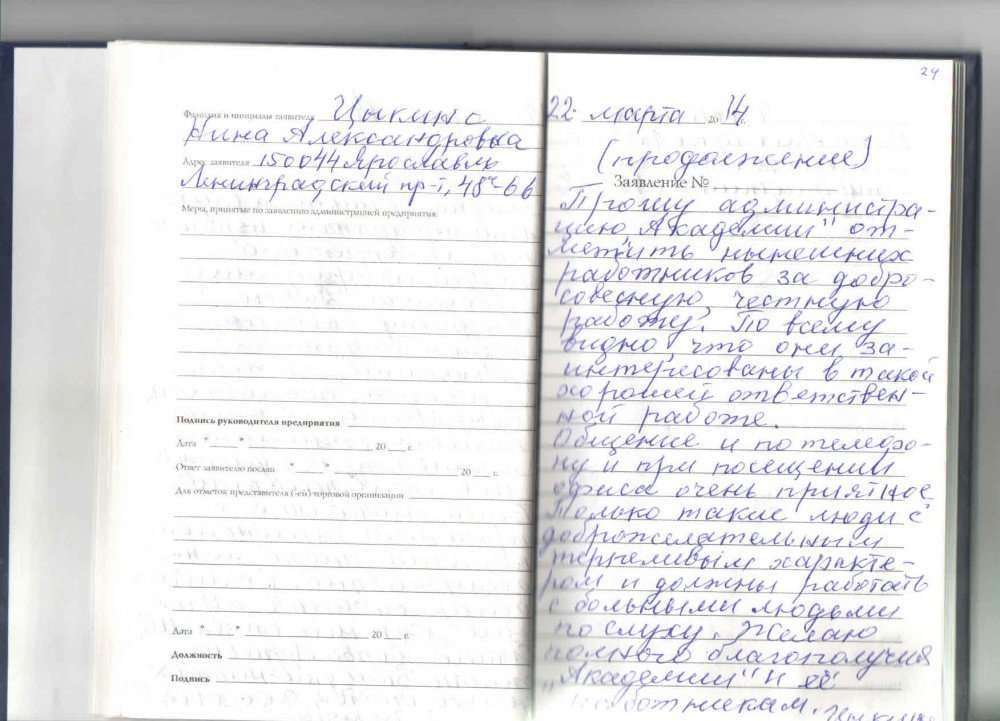 Фамилия и инициалы заявителя Цыкина
Нина Александровна
Адрес заявителя 150044 Ярославль
Ленинградский пр-т,
Меры, принятые по заявлению администрацией предприятия:
Подпись руководителя предприятия
Дата " " 20 г.
Ответ заявителю послан " " 20 г.
Для отметок представителя (-ей) торговой организации
Дата " " 20 г.
Должность
Подпись
24
22 марта 20 14 г.
(продолжение)
Заявление №
Прошу администра-
цию „Академии" от-
метить нынешних
работников за добро-
совестную, честную
работу. По всему
видно, что они за-
интересованы в такой
хорошей ответствен-
ной работе.
Общение и по телефо-
ну и при посещении
офиса очень приятное
Только такие люди с
доброжелательным
терпеливым характе-
ром и должны работать
с больными людьми
по слуху. Желаю
полного благополучия
„Академии" и её
работникам.